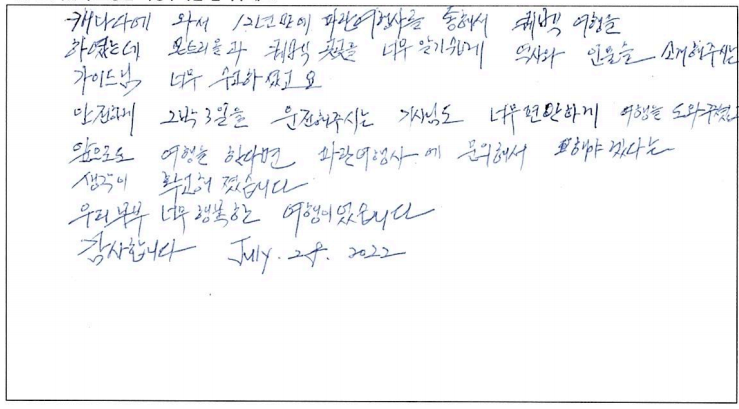 캐나다에 와서 12년만에 파란여행사를 통해서 퀘백 여행을
하였는데 몬트리올과 퀘백 곳곳을 너무 알기쉽게 역사와 인물을 소개해주시는
가이드님 너무 수고하셨고요
안전하게 2박3일을 운전해주시는 기사님도 너무 편안하게 여행을 도와주셨고
앞으로도 여행을 한다면 파란여행사에 문의해서 해야 겠다는
생각이 확고해 졌습니다
우리 부부 너무 행복한 여행이었습니다
감사합니다 July. 28. 2022